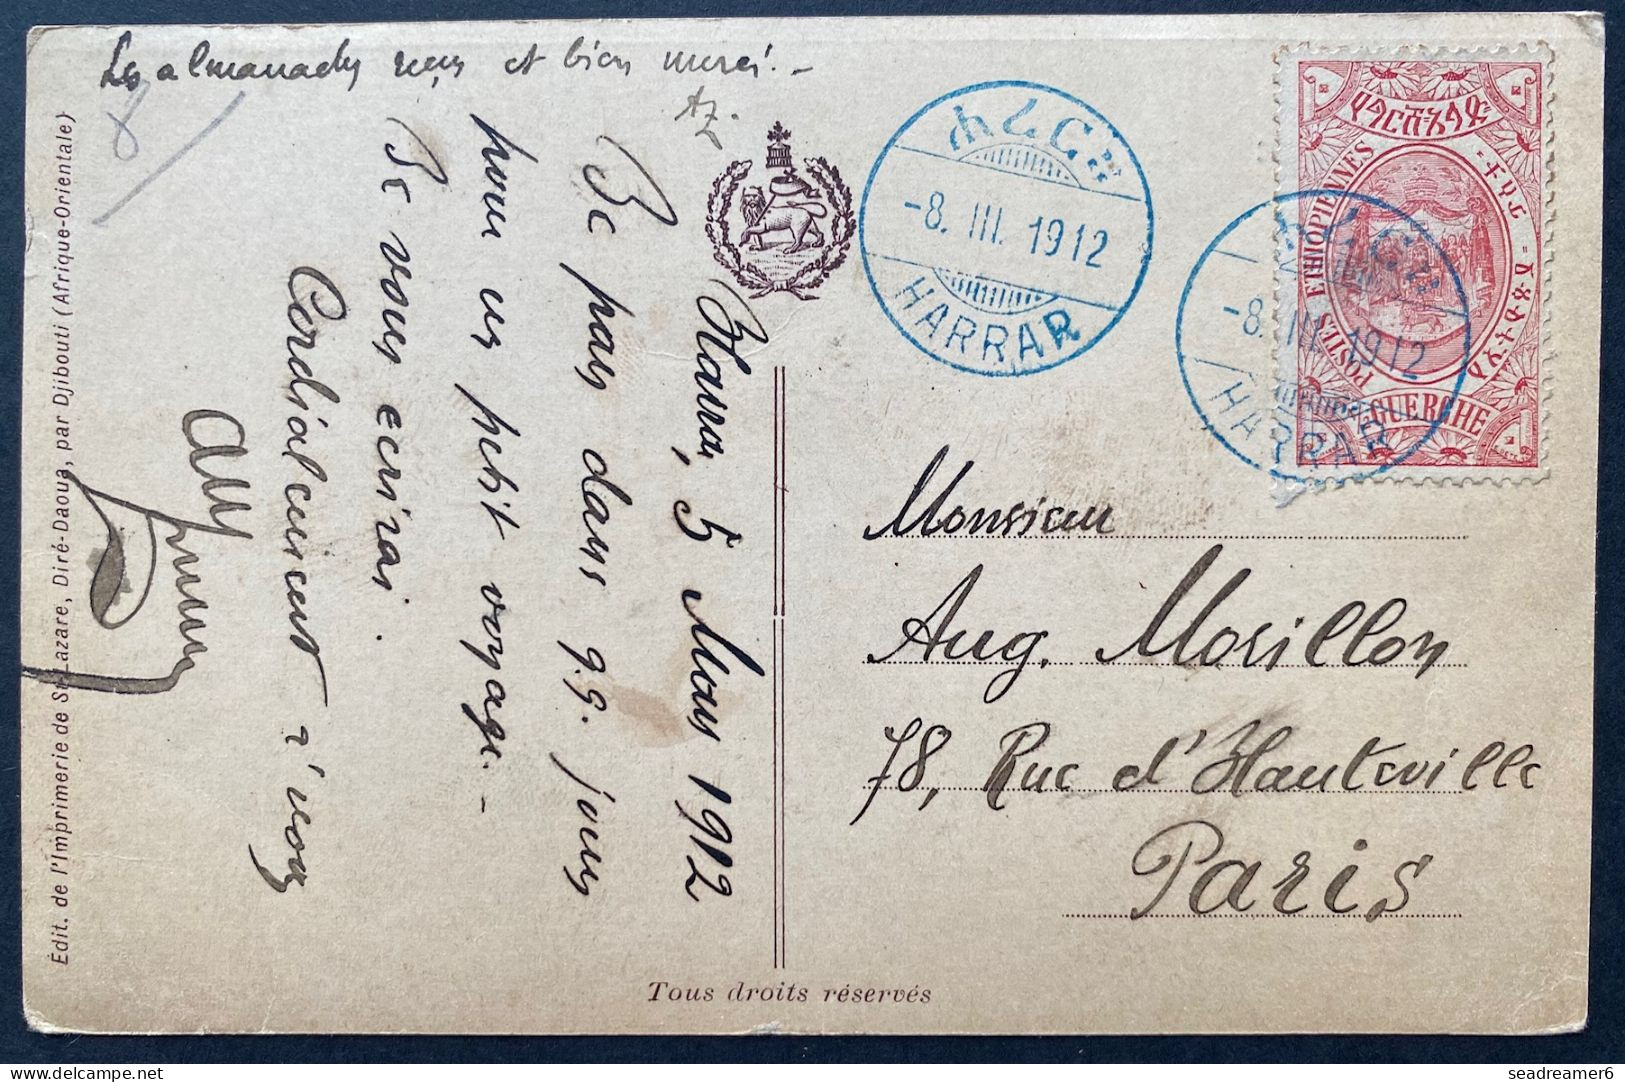 Les almanachs reçus et bien merci. -
Az.
Harrar, 5 Mars 1912
Je pars dans q.q. jours
pour un petit voyage. -
Je vous écrirai.
Cordialement à vous
Édit. de l'Imprimerie de St-Lazare, Diré-Daoua, par Djibouti (Afrique-Orientale)
ሐረር።
-8. III. 1912
HARRAR
ሐረር።
-8. III. 1912
HARRAR
POSTES ETHIOPIENNES
1 GUERCHE
Monsieur
Aug. Morillon
78, Rue d'Hauteville
Paris
Tous droits réservés
seadreamer6